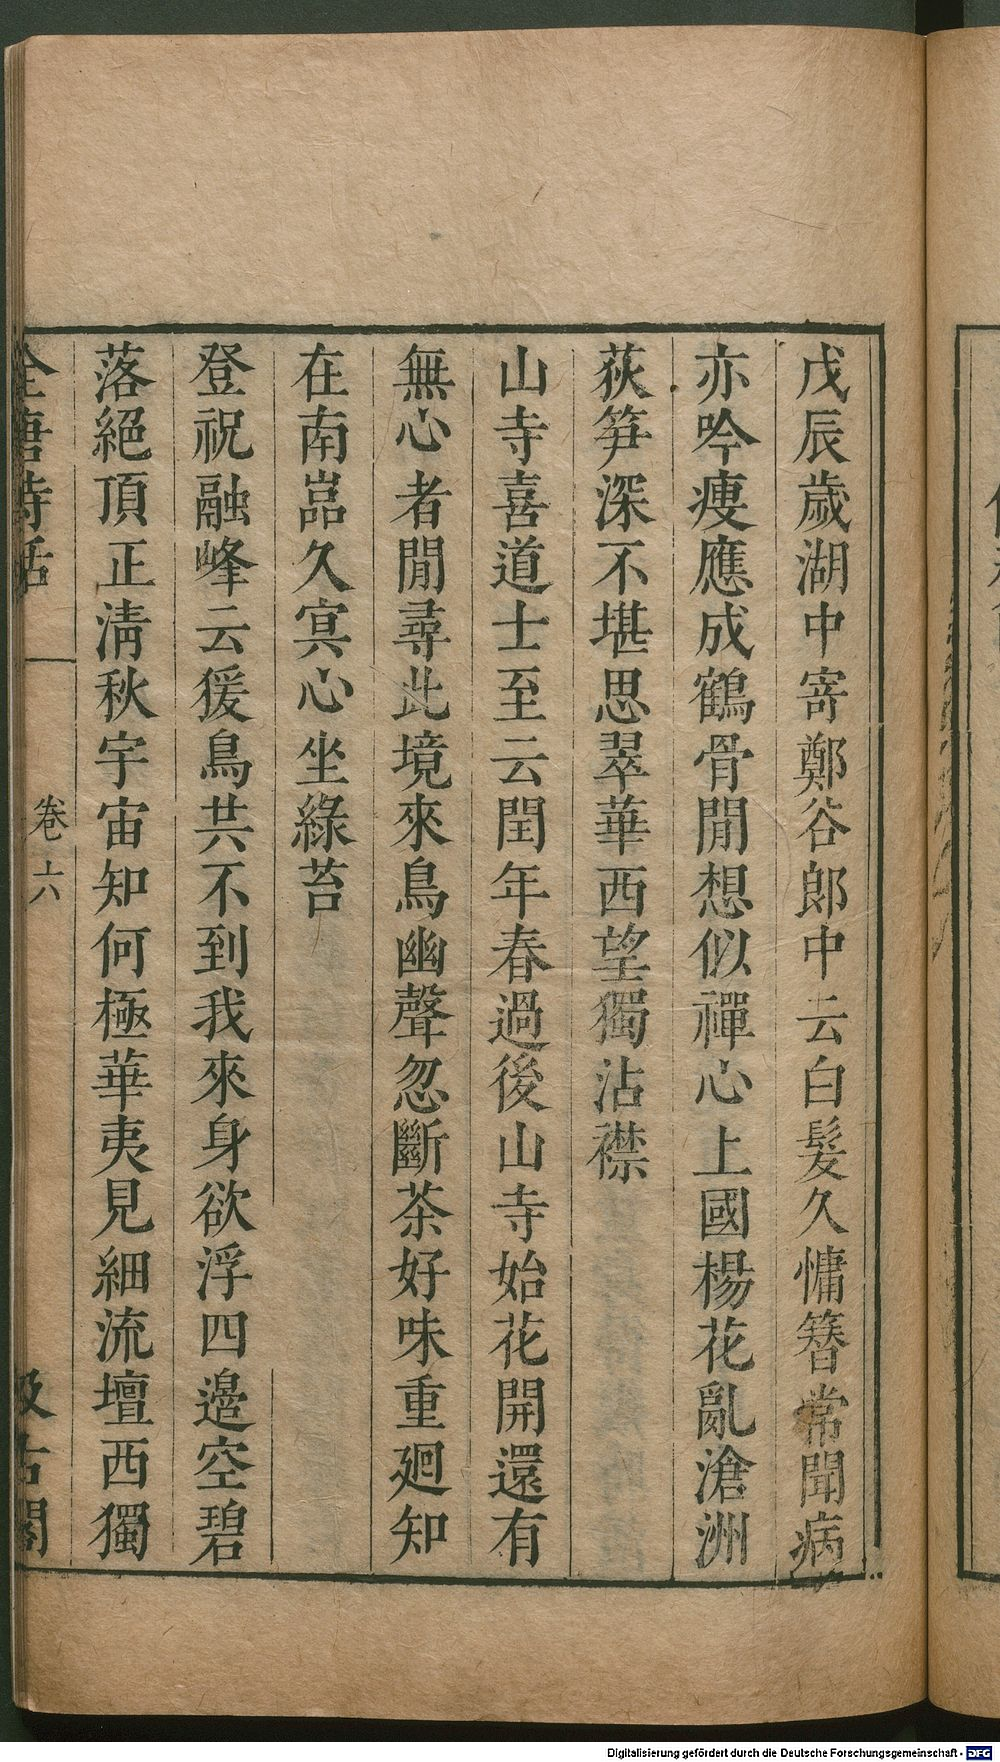 戊辰歲湖中寄鄭谷郎中云白髮久慵簪常聞病
亦吟瘦應成鶴骨閒想似禪心上國楊花亂滄洲
荻笋深不堪思翠華西望獨沾襟
山寺喜道士至云閏年春過後山寺始花開還有
無心者閒尋此境來鳥幽聲忽斷茶好味重廻知
在南嵓久寞心坐綠苔
登祝融峰云猨鳥共不到我來身欲浮四邉空碧
落絕頂正清秋宇宙知何極華夷見細流壇西獨
全唐詩話
卷六
汲古閣
Digitalisierung gefördert durch die Deutsche Forschungsgemeinschaft - DFG